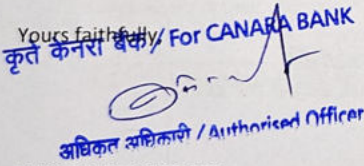 Yours faithfully,
कृते केनरा बैंक / For CANARA BANK
अधिकृत अधिकारी / Authorised Officer